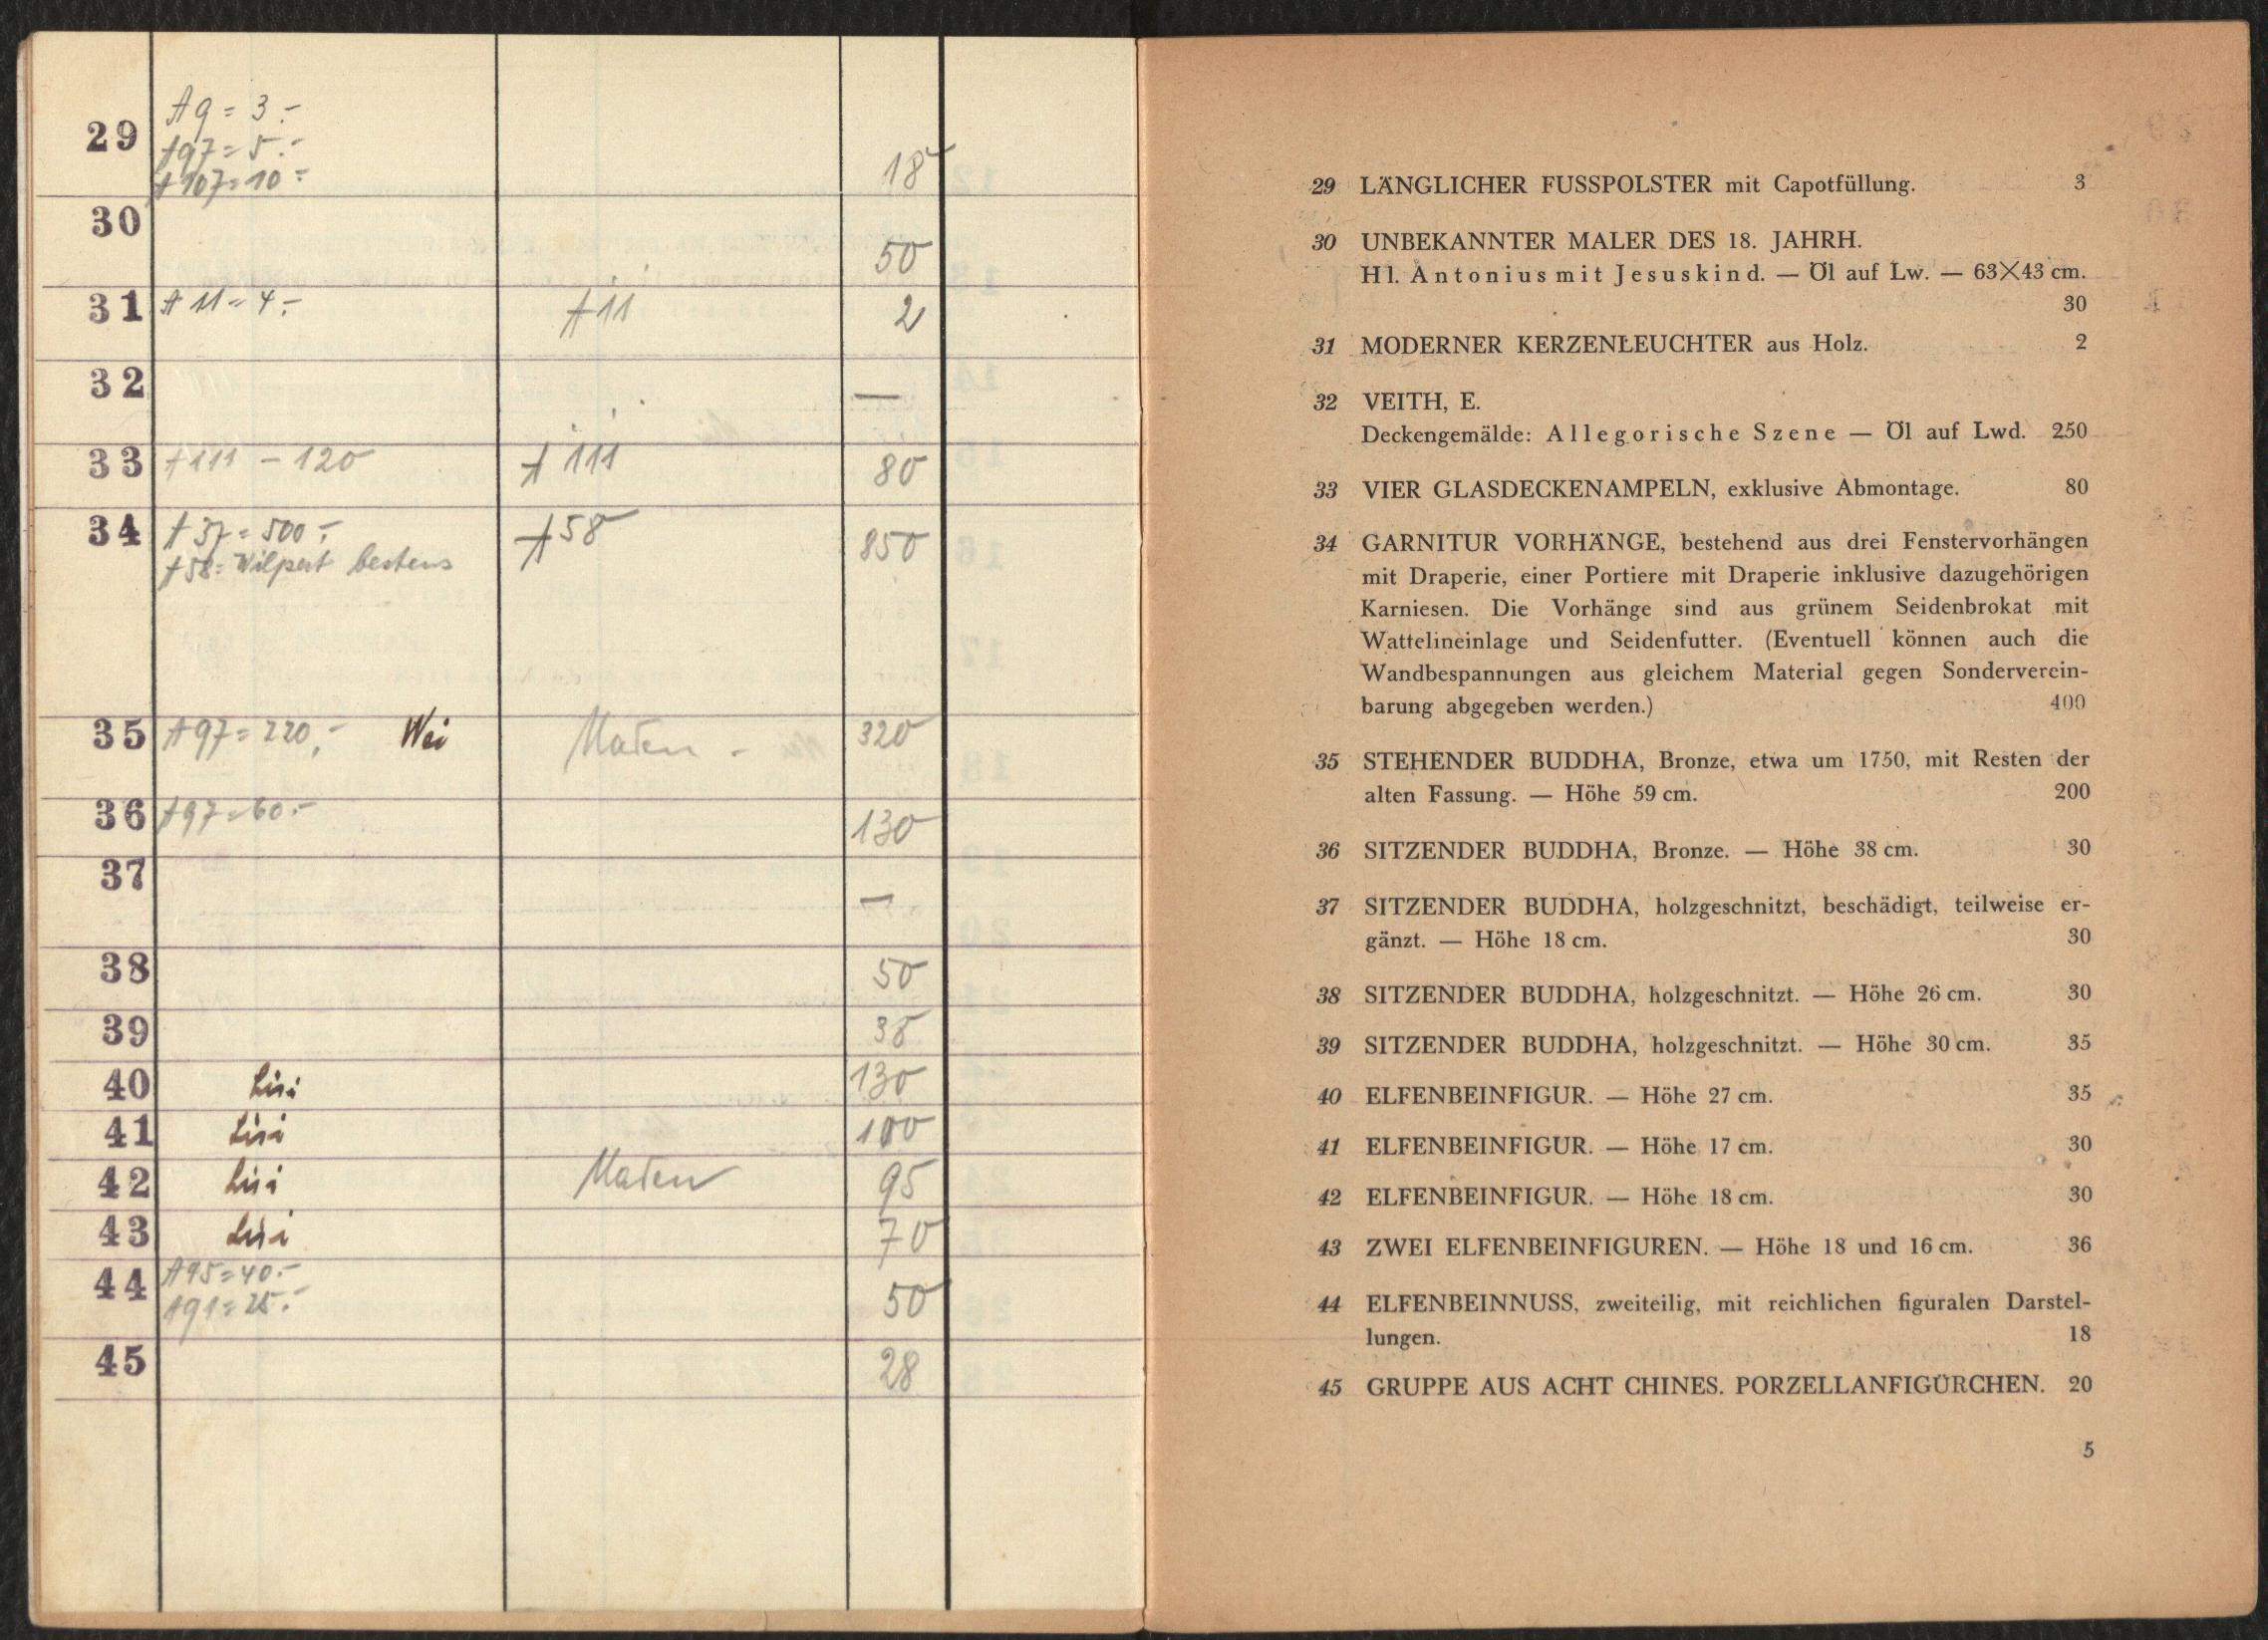 29 A9 = 3.-
A97 = 5.-
A107 = 10.- 18
30 50
31 A 11 = 4.- A 11 2
32 —
33 A 111 - 120 A 111 80
34 A 37 = 500.- A 58 850
A 58: Wilpert bestens
35 A 97 = 220,- Wei Maten - 320
36 A 97 = 60.- 130
37 —
38 50
39 38
40 Lisi 130
41 Lisi 100
42 Lisi Maten 95
43 Lisi 70
44 A95 = 40.-
A91 = 25.- 50
45 28
29 LÄNGLICHER FUSSPOLSTER mit Capotfüllung. 3
30 UNBEKANNTER MALER DES 18. JAHRH.
Hl. Antonius mit Jesuskind. — Öl auf Lw. — 63×43 cm.
30
31 MODERNER KERZENLEUCHTER aus Holz. 2
32 VEITH, E.
Deckengemälde: Allegorische Szene — Öl auf Lwd. 250
33 VIER GLASDECKENAMPELN, exklusive Abmontage. 80
34 GARNITUR VORHÄNGE, bestehend aus drei Fenstervorhängen
mit Draperie, einer Portiere mit Draperie inklusive dazugehörigen
Karniesen. Die Vorhänge sind aus grünem Seidenbrokat mit
Wattelineinlage und Seidenfutter. (Eventuell können auch die
Wandbespannungen aus gleichem Material gegen Sonderverein-
barung abgegeben werden.) 400
35 STEHENDER BUDDHA, Bronze, etwa um 1750, mit Resten der
alten Fassung. — Höhe 59 cm. 200
36 SITZENDER BUDDHA, Bronze. — Höhe 38 cm. 30
37 SITZENDER BUDDHA, holzgeschnitzt, beschädigt, teilweise er-
gänzt. — Höhe 18 cm. 30
38 SITZENDER BUDDHA, holzgeschnitzt. — Höhe 26 cm. 30
39 SITZENDER BUDDHA, holzgeschnitzt. — Höhe 30 cm. 35
40 ELFENBEINFIGUR. — Höhe 27 cm. 35
41 ELFENBEINFIGUR. — Höhe 17 cm. 30
42 ELFENBEINFIGUR. — Höhe 18 cm. 30
43 ZWEI ELFENBEINFIGUREN. — Höhe 18 und 16 cm. 36
44 ELFENBEINNUSS, zweiteilig, mit reichlichen figuralen Darstel-
lungen. 18
45 GRUPPE AUS ACHT CHINES. PORZELLANFIGÜRCHEN. 20
5